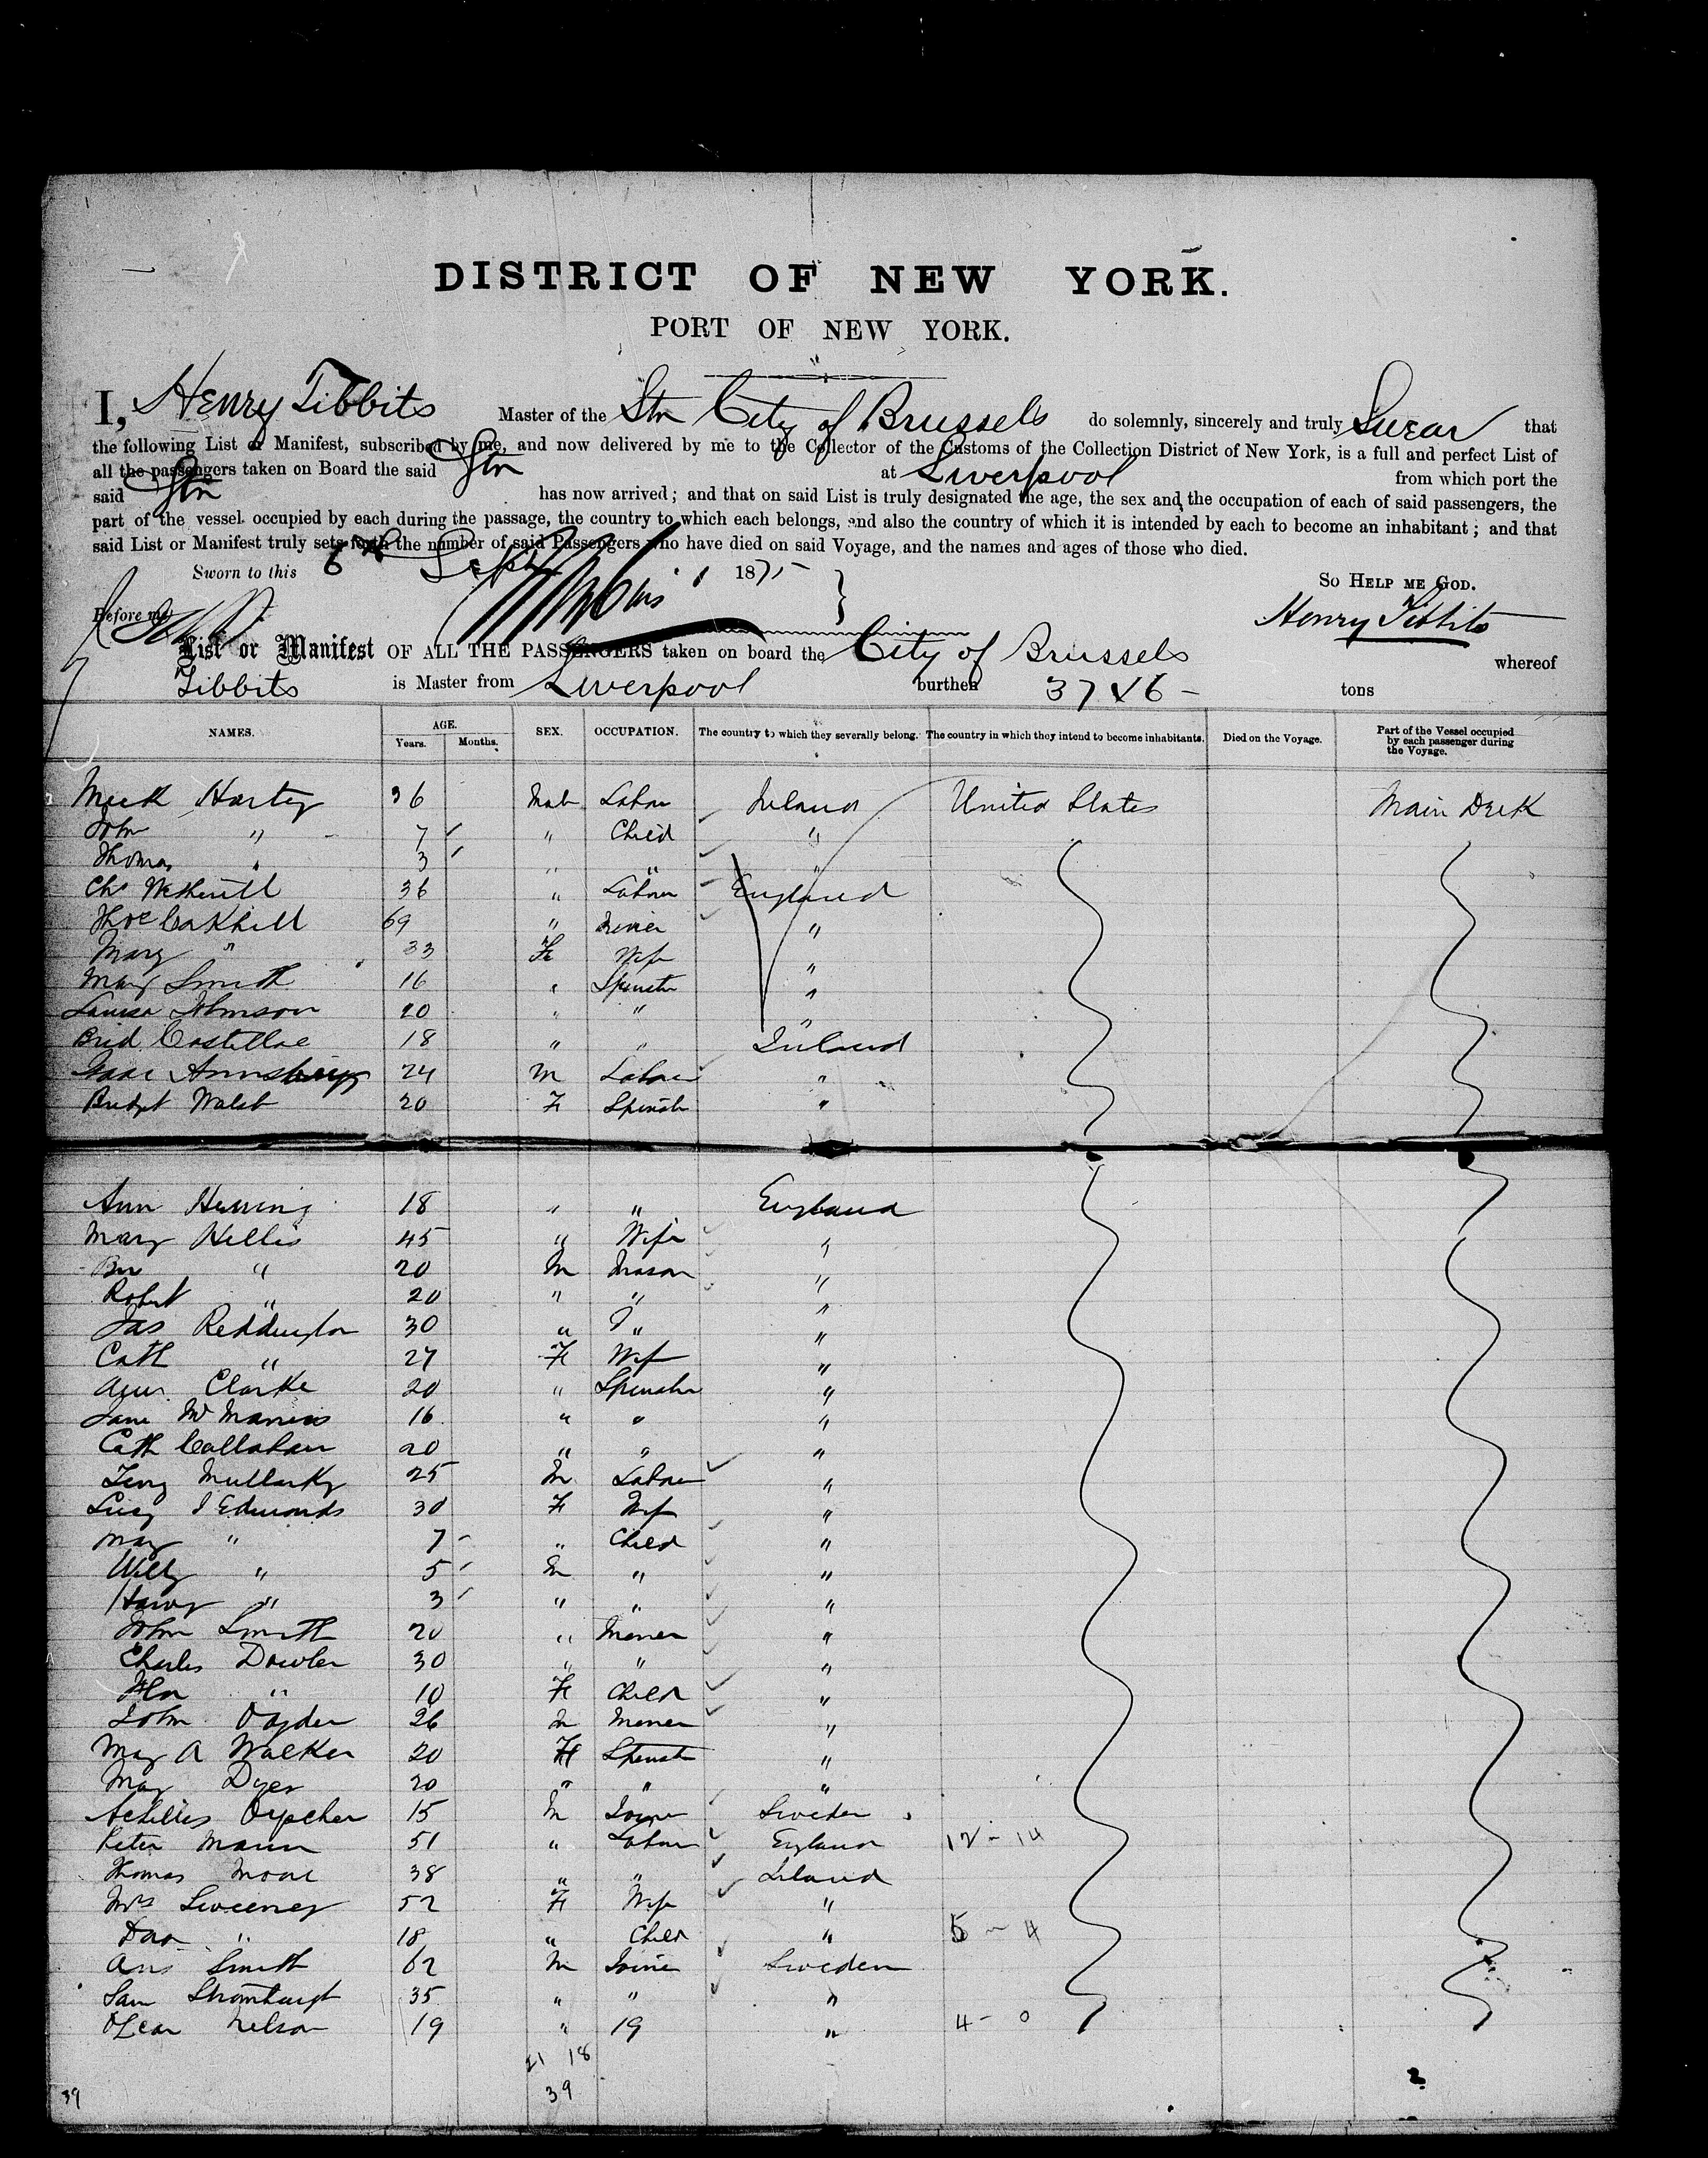 DISTRICT OF NEW YORK.
PORT OF NEW YORK.
I, Henry Tibbits Master of the Str City of Brussels do solemnly, sincerely and truly Swear that
the following List or Manifest, subscribed by me, and now delivered by me to the Collector of the Customs of the Collection District of New York, is a full and perfect List of
all the passengers taken on Board the said Str at Liverpool from which port the
said Str has now arrived; and that on said List is truly designated the age, the sex and the occupation of each of said passengers, the
part of the vessel occupied by each during the passage, the country to which each belongs, and also the country of which it is intended by each to become an inhabitant; and that
said List or Manifest truly sets forth the number of said Passengers who have died on said Voyage, and the names and ages of those who died.
Sworn to this 6th Sept 1875 So HELP ME GOD.
Before me Henry Tibbits
List or Manifest OF ALL THE PASSENGERS taken on board the City of Brussels whereof
Tibbits is Master from Liverpool burthen 37 6 tons
NAMES. AGE. Years. Months. SEX. OCCUPATION. The country to which they severally belong. The country in which they intend to become inhabitants. Died on the Voyage. Part of the Vessel occupied by each passenger during the Voyage.
Harty 36 Labor Ireland United States Main Deck
John " 7 " Child "
Thomas " 3 " " "
36 " Labor England
69 " "
Mary " 33 Fe Wife "
Mary Smith 16 " Spinster "
Louisa Johnson 20 " " "
Brid Costelloe 18 " " Ireland
24 M Labor "
Bridget Walsh 20 F Spinster "
Ann 18 " " England
Mary Hillis 45 " Wife "
" 20 M Mason "
Robert " 20 " " "
Jas Reddington 30 " " "
Cath " 27 F Wife "
Clarke 20 " Spinster "
Jane 16 " " "
Cath Callahan 20 " " "
Mullarky 25 M Labor "
Lucy J Edmonds 30 F Wife "
May " 7 " Child "
Willy " 5 M " "
Harry " 3 " " "
John Smith 20 " Miner "
Charles Dowler 30 " " "
" 10 F Child "
John Ogden 26 M Miner "
May A Walker 20 F Spinster "
May Dyer 20 " " "
Achilles 15 M Joiner Sweden
Peter Mann 51 " Labor England 12 - 14
Thomas Moore 38 " " Ireland
Mrs Sweeney 52 F Wife "
" 18 " Child " 5 - 4
Smith 62 M Joiner Sweden
Sam 35 " " "
Oscar Nelson 19 " 19 " 4 - 0
21 18
39 39